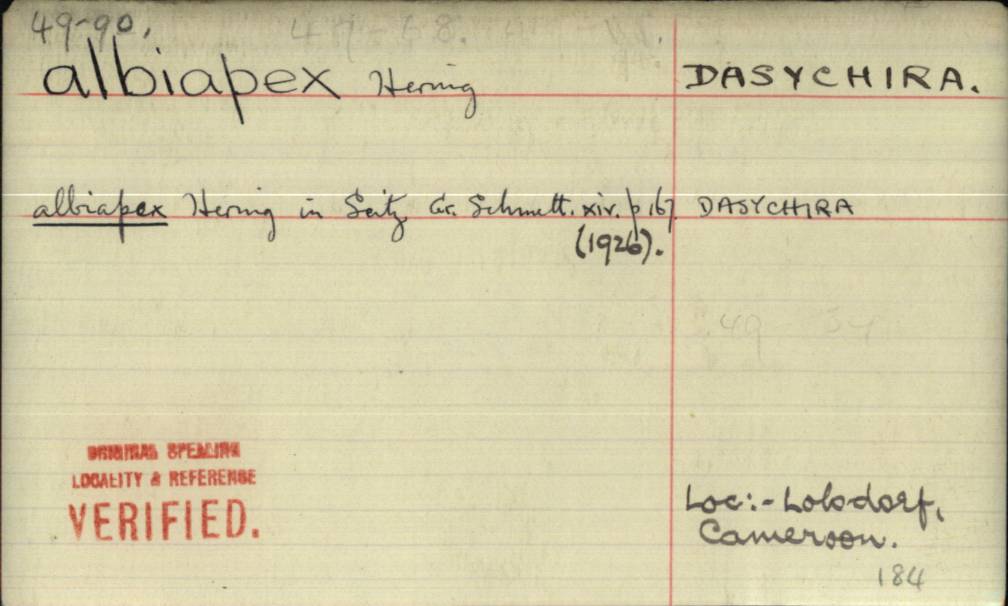 49-90.
albiapex Hering DASYCHIRA.
albiapex Hering in Seitz Gr. Schmett. xiv. p 167 DASYCHIRA
(1926).
49
ORIGINAL SPELLING
LOCALITY & REFERENCE
VERIFIED.
Loc:- Lolodorf,
Cameroon.
184